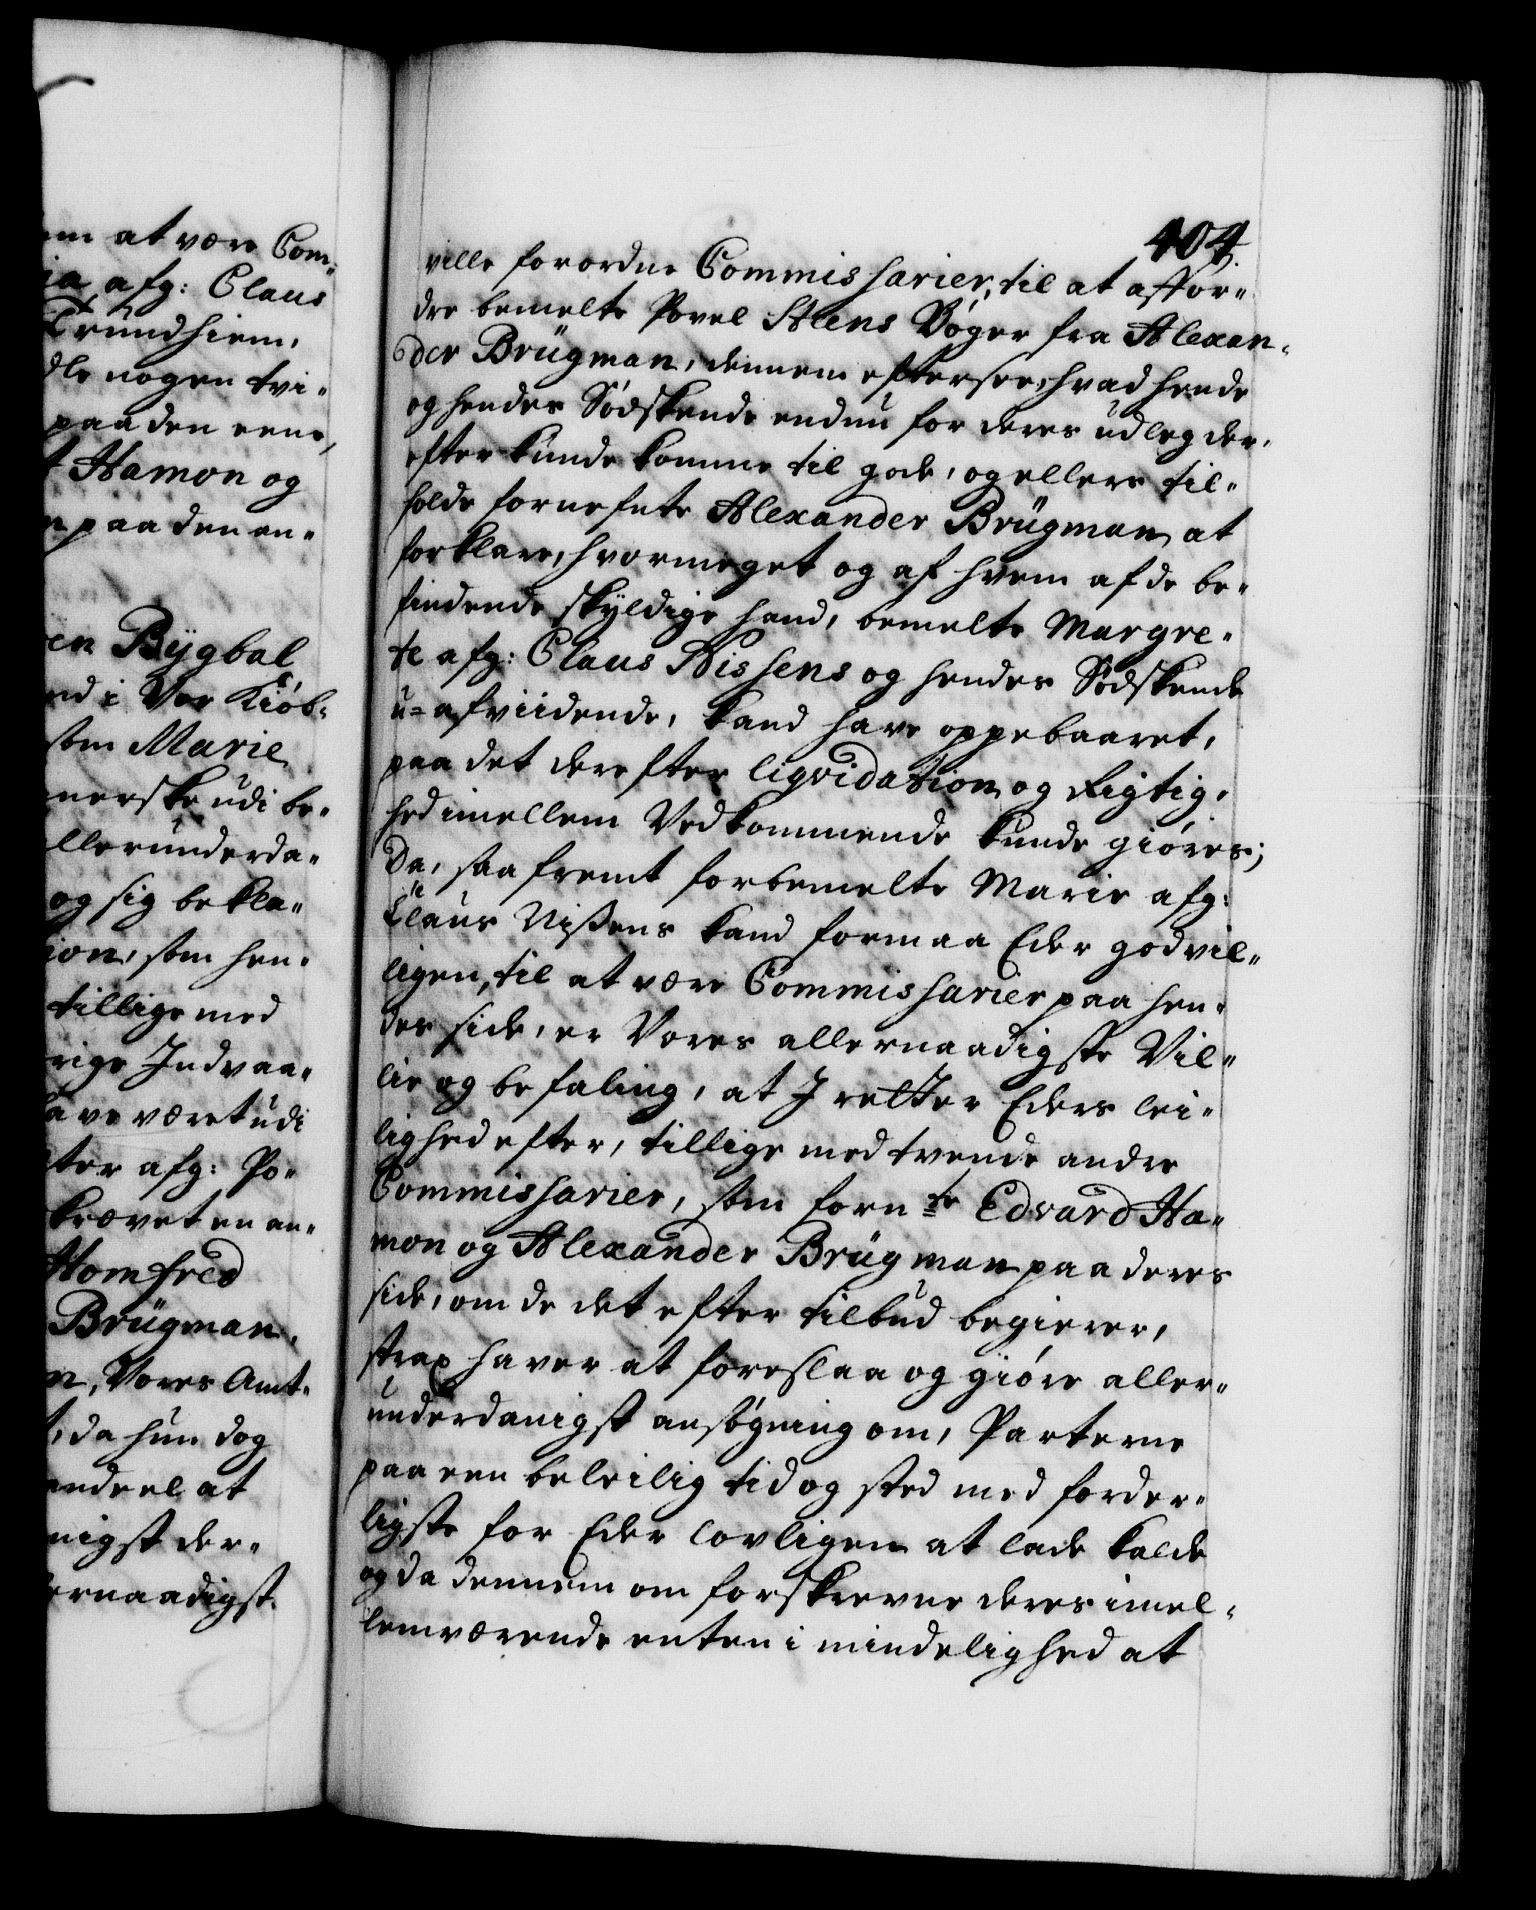 em at være Com-
ia afg: Claus
Trundhiem,
dle nogen tvi-
paa den eene,
t Hamon og
n paa den an-
en Bÿgbal
nd i Vor Kiób-
som Marie
nerske udi be-
llerunderda-
og sig bekla-
ion, som hen-
tillige med
rige Indvaa-
have været udi
ter afg: Po-
krævet en an-
Homfred
Brügman,
n, Vores Amt-
, da hun dog
andeel at
nigst der-
ernaadigst.
404
ville forordne Commissharier, til at affor-
dre bemelte Povel Stens Bøger fra Alexan-
der Brügman, dennem eftersee, hvad hende
og hendes Södskende endnu for deres udleg der-
efter kunde komme til gode, og ellers til-
holde fornefnte Alexander Brügman at
forklare, hvormeget og af hvem af de be-
findende skÿldige hand, bemelte Margre-
te afg: Claus Nisshens og hendes Södskende
u-afviidende, kand have oppebaaret,
paa det derefter liqvidation og Rigtig-
hed imellem Vedkommende kunde giøres;
Da, saafremt forbemelte Marie afg:
Claus Nissens kand formaa Eder godvil-
ligen, til at være Commissharier paa hen-
des side, er Vores allernaadigste Vil-
lie og befaling, at I retter Eders lei-
lighed efter, tillige med tvende andre
Commissharier, som fornte Edvard Ha-
mon og Alexander Brügman paa deres
side, om de det efter tilbud begierer,
strax haver at foreslaa og giøre aller-
underdanigst ansøgning om, Parterne
paa een beleilig tid og sted med forder-
ligste for Eder lovligen at lade kalde
og da dennem om forskrevne deres imel-
lemværende enten i mindelighed at